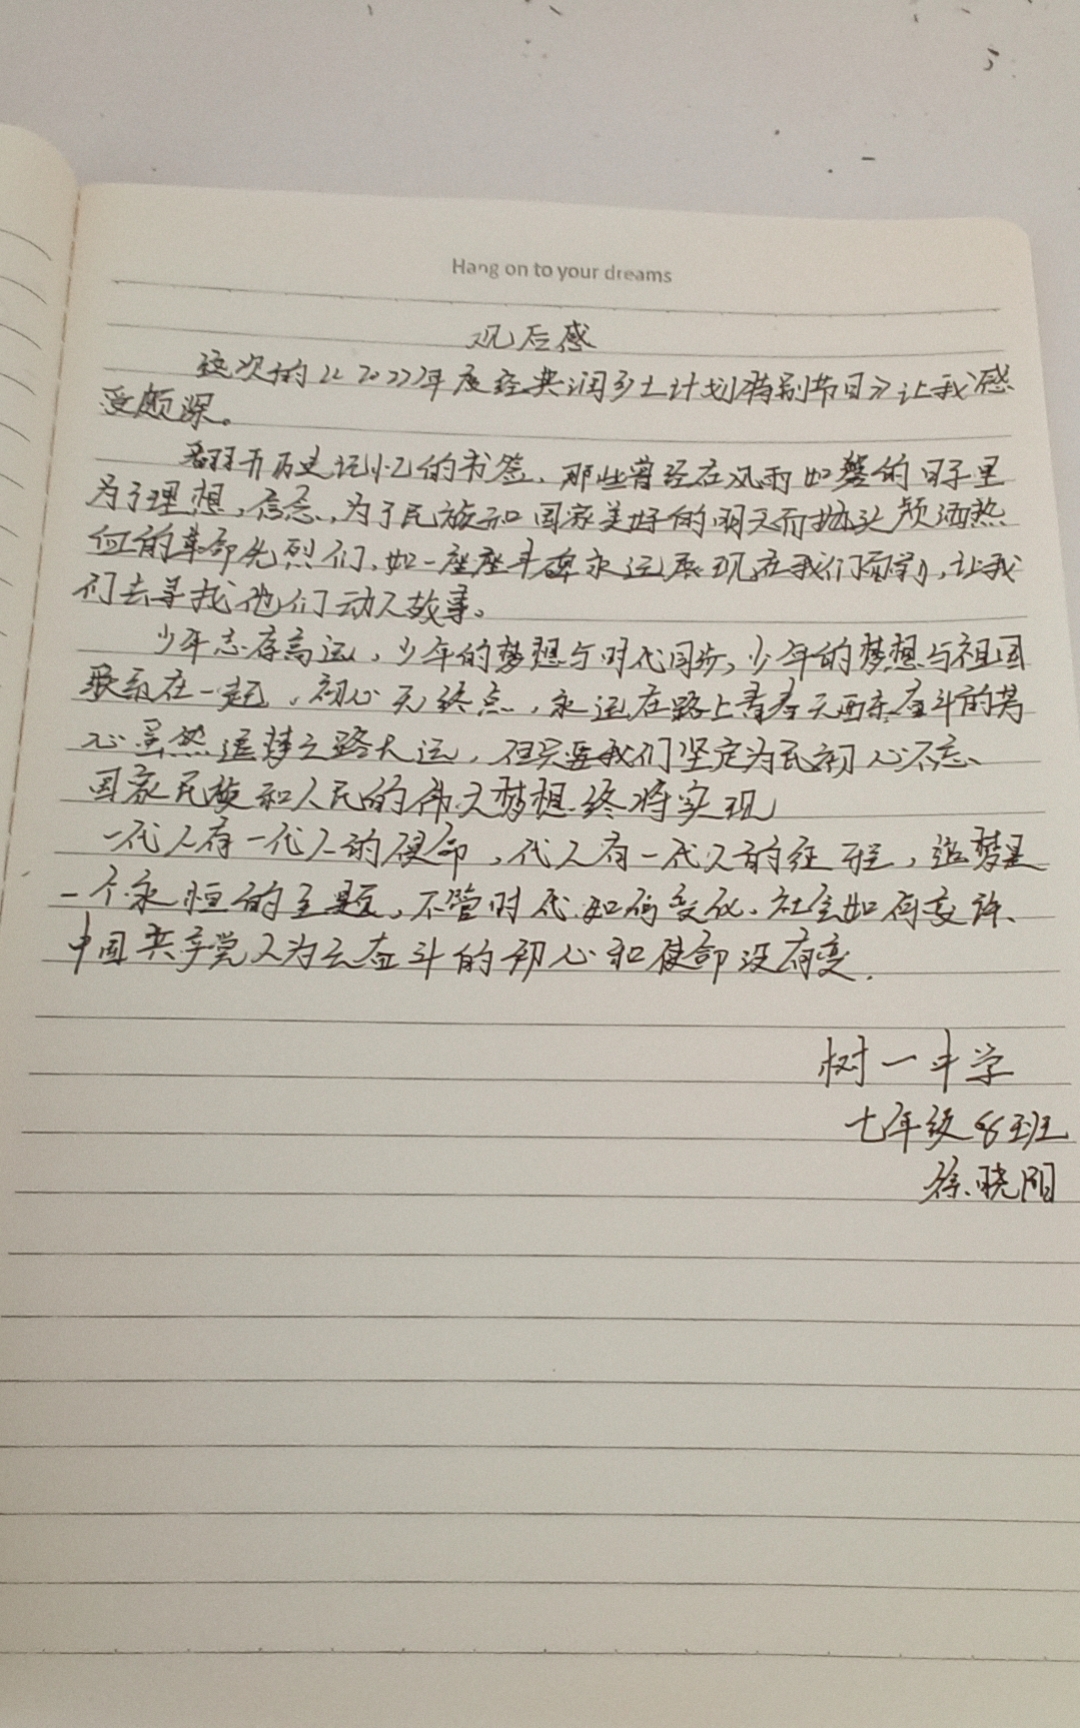 Hang on to your dreams
观后感
这次的《2022年度经典润乡土计划特别节目》让我感
受颇深。
翻开历史记忆的书签,那些曾经在风雨如磐的日子里
为了理想,信念,为了民族和国家美好的明天而抛头颅洒热
血的革命先烈们,如一座座丰碑永远展现在我们面前,让我
们去寻找他们动人故事。
少年志存高远,少年的梦想与时代同步,少年的梦想与祖国
联系在一起,初心无终点,永远在路上青春无悔奋斗的
心虽然追梦之路太远,但只要我们坚定为民初心不忘、
国家民族和人民的伟大梦想终将实现
一代人有一代人的使命,代人有一代人的征程,追梦是
一个永恒的主题,不管时代如何变化、社会如何变迁、
中国共产党人为之奋斗的初心和使命没有变.
树一中学
七年级8班
徐晓阳